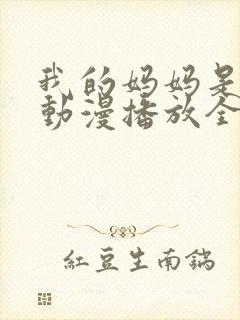 我的妈妈是
動漫播放全
紅豆生南鍴